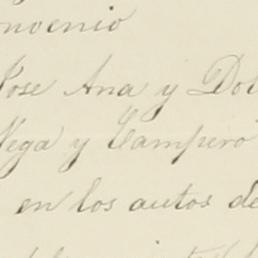 nvenio
Jose Ana y Dol
Vega y Campero
en los autos de